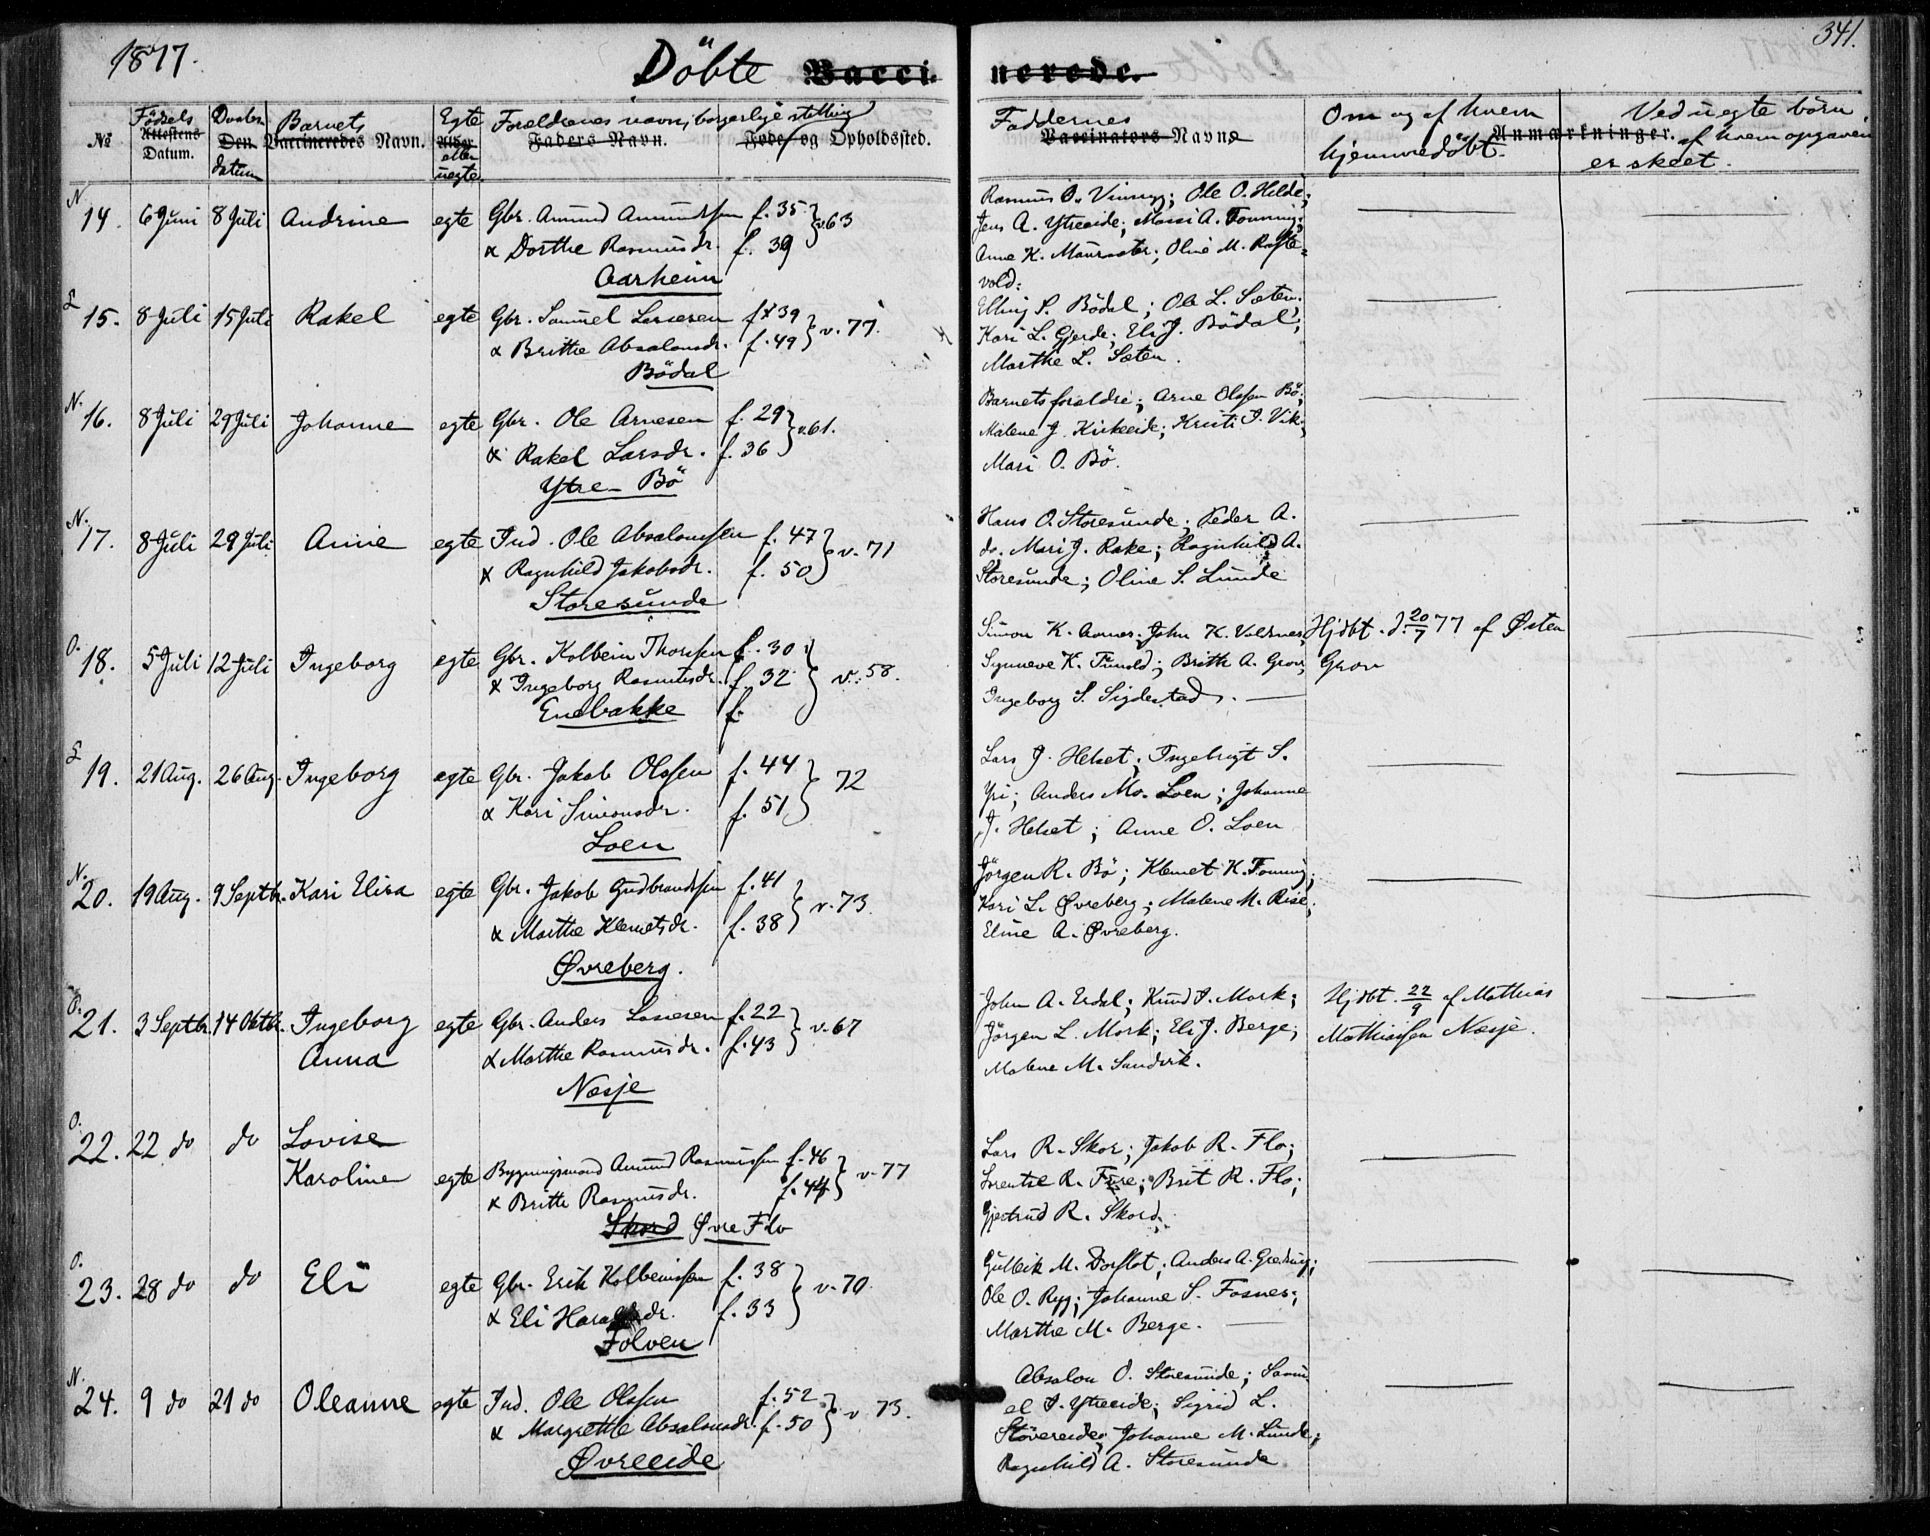 1877.
Döbte Vaccinerede.
341.
№
Födsels Attestens Datum.
Daabs Den datum
Barnets Vaccineredes Navn.
Egte Alder eller uegte.
Foraldrenes navn, borgerlige stilling
Faders Navn. Föde og Opholdssted.
Faddernes
Vaccinators Navne
Om og af hvem hjemmedöbt.
Anmærkninger.
Ved uegte börn, af hvem opgaven er skeet.
N
14. 6 Juni 8 Juli Andrine egte Gbr. Amund Amundsen f. 35 } v. 63
& Dorthe Rasmusdr. f. 39
Aarheim
Rasmus O. Vinsryg; Ole O. Helde;
Jens A. Ytreeide; Massi A. Tonning;
Anne K. Maurset; Oline M. Rafte=
vold:
L
15. 8 Juli 15 Juli Rakel egte Gbr. Samuel Larsen f. 39 } v. 77.
& Brithe Absalonsdr. f. 49
Bödal
Elling S. Bödal; Ole L. Sæten;
Kari L. Gjerde; Eli J. Bödal;
Marthe L. Sæten.
N.
16. 8 Juli 29 Juli Johanne egte Gbr. Ole Arnesen f. 29 } v. 61.
& Rakel Larsdr. f. 36
Ytre-Bö
Barnets foraldre; Arne Olssen Bö;
Malene J. Kirkeeide; Kristi I. Vik;
Mari O. Bö.
N.
17. 8 Juli 29 Juli Anne egte Ind. Ole Absalonssen f. 47 } v. 71
& Ragnhild Jakobsdr. f. 50
Storesunde
Hans O. Storesunde; Peder A.
do. Mari J. Rake; Ragnhild A.
Storesunde; Oline S. Lunde
O.
18. 5 Juli 12 Juli Ingeborg egte Gbr. Kolbein Thorssen f. 30 } v. 58.
& Ingeborg Rasmusdr. f. 32
Enebakke f.
Simon K. Avnes. John K. Vollsnes;
Synneve K. Tunold; Brithe A. Grov;
Ingeborg S. Sigdestad.
Hjdbt. d. 20/7 77 af Østen
Grov
L
19. 21 Aug. 26 Aug. Ingeborg egte Gbr. Jakob Olssen f. 44 } 72
& Kari Simonsdr. f. 51
Loen
Lars J. Helset; Ingebrigt S.
Yri; Anders Mo. Loen; Johanne
J. Helset; Anne O. Loen
N.
20. 19 Aug. 9 Septb. Kari Elisa egte Gbr. Jakob Gudbrandssen f. 41 } v. 73
& Marthe Klemetsdr. f. 38
Øvreberg.
Jörgen R. Bö; Klemet K. Tonning;
Kari L. Øvreberg; Malene M. Rise;
Eline A. Øvreberg.
O.
21. 3 Septb. 14 Oktb. Ingeborg egte Gbr. Anders Lassesen f. 22 } v. 67
Anna & Marthe Rasmusdr. f. 43
Nesje
John A. Erdal; Knud I. Mork;
Jörgen L. Mork; Eli J. Berge;
Malene M. Sandvik.
Hjdbt. 22/9 af Mathias
Mathiassen Nesje.
O.
22. 22 do do Lovise
Karoline egte Bygningsmand Amund Rasmussen f. 46 } v. 77
& Brithe Rasmusdr. f. 44
Skord Øvre Flo
Lars R. Skor; Jakob R. Flo;
Lorentse R. Fure; Brit R. Flo;
Gjertrud R. Skord.
O.
23. 28 do do Eli egte Gbr. Erik Kolbeinssen f. 38 } v. 70.
& Eli Haraldsdr. f. 33
Folven
Gulleik M. Dorflot; Anders A. Greding;
Ole O. Ryg; Johanne S. Fosnes;
Marthe M. Berge.
N.
24. 9 do 21 do Oleanne egte Ind. Ole Olssen f. 52 } v. 73.
& Margrethe Absalonsdr. f. 50
Øvreeide
Absalon O. Storesunde; Samu
el I. Ytreeide; Sigrid L.
Stövereide; Johanne M. Lunde;
Ragnhild A. Storesunde